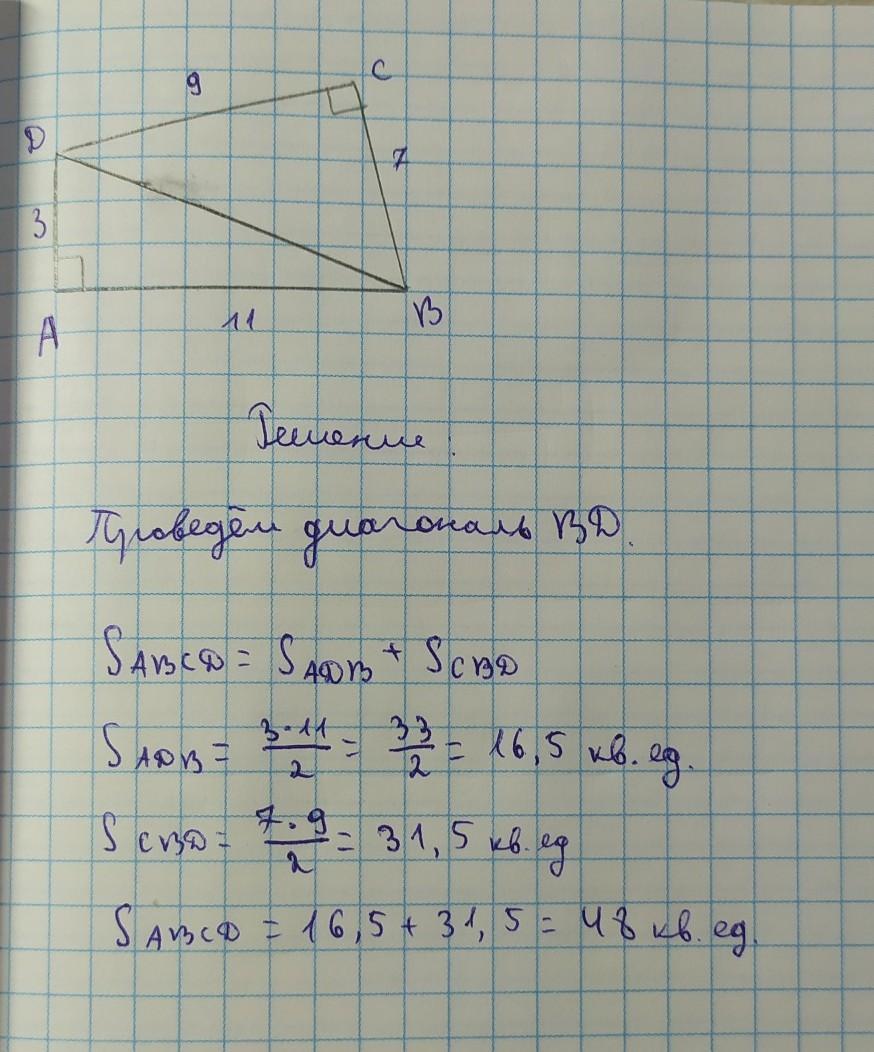 9
C
D
7
3
A
11
B
Решение:
Проведём диагональ BD.
S ABCD = S ADB + S CBD
S ADB = 3·11/2 = 33/2 = 16,5 кв. ед.
S CBD = 7·9/2 = 31,5 кв. ед
S ABCD = 16,5 + 31,5 = 48 кв. ед.